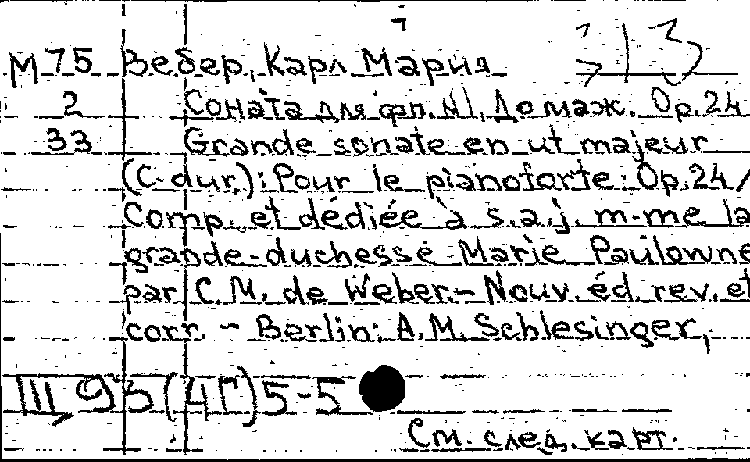 М 75 Вебер, Карл Мария
2 Соната для фп. №1, До маж. Op.24
33 Grande sonate en ut majeur
(C-dur): Pour le pianoforte: Op.24/
Comp. et dédiée à s.a.j. m-me la
grande-duchesse Marie Paulowne
par C.M. de Weber.- Nouv. éd. rev. et
corr. - Berlin: A.M. Schlesinger,
III, 93(4Г)5-5
См. след. карт.